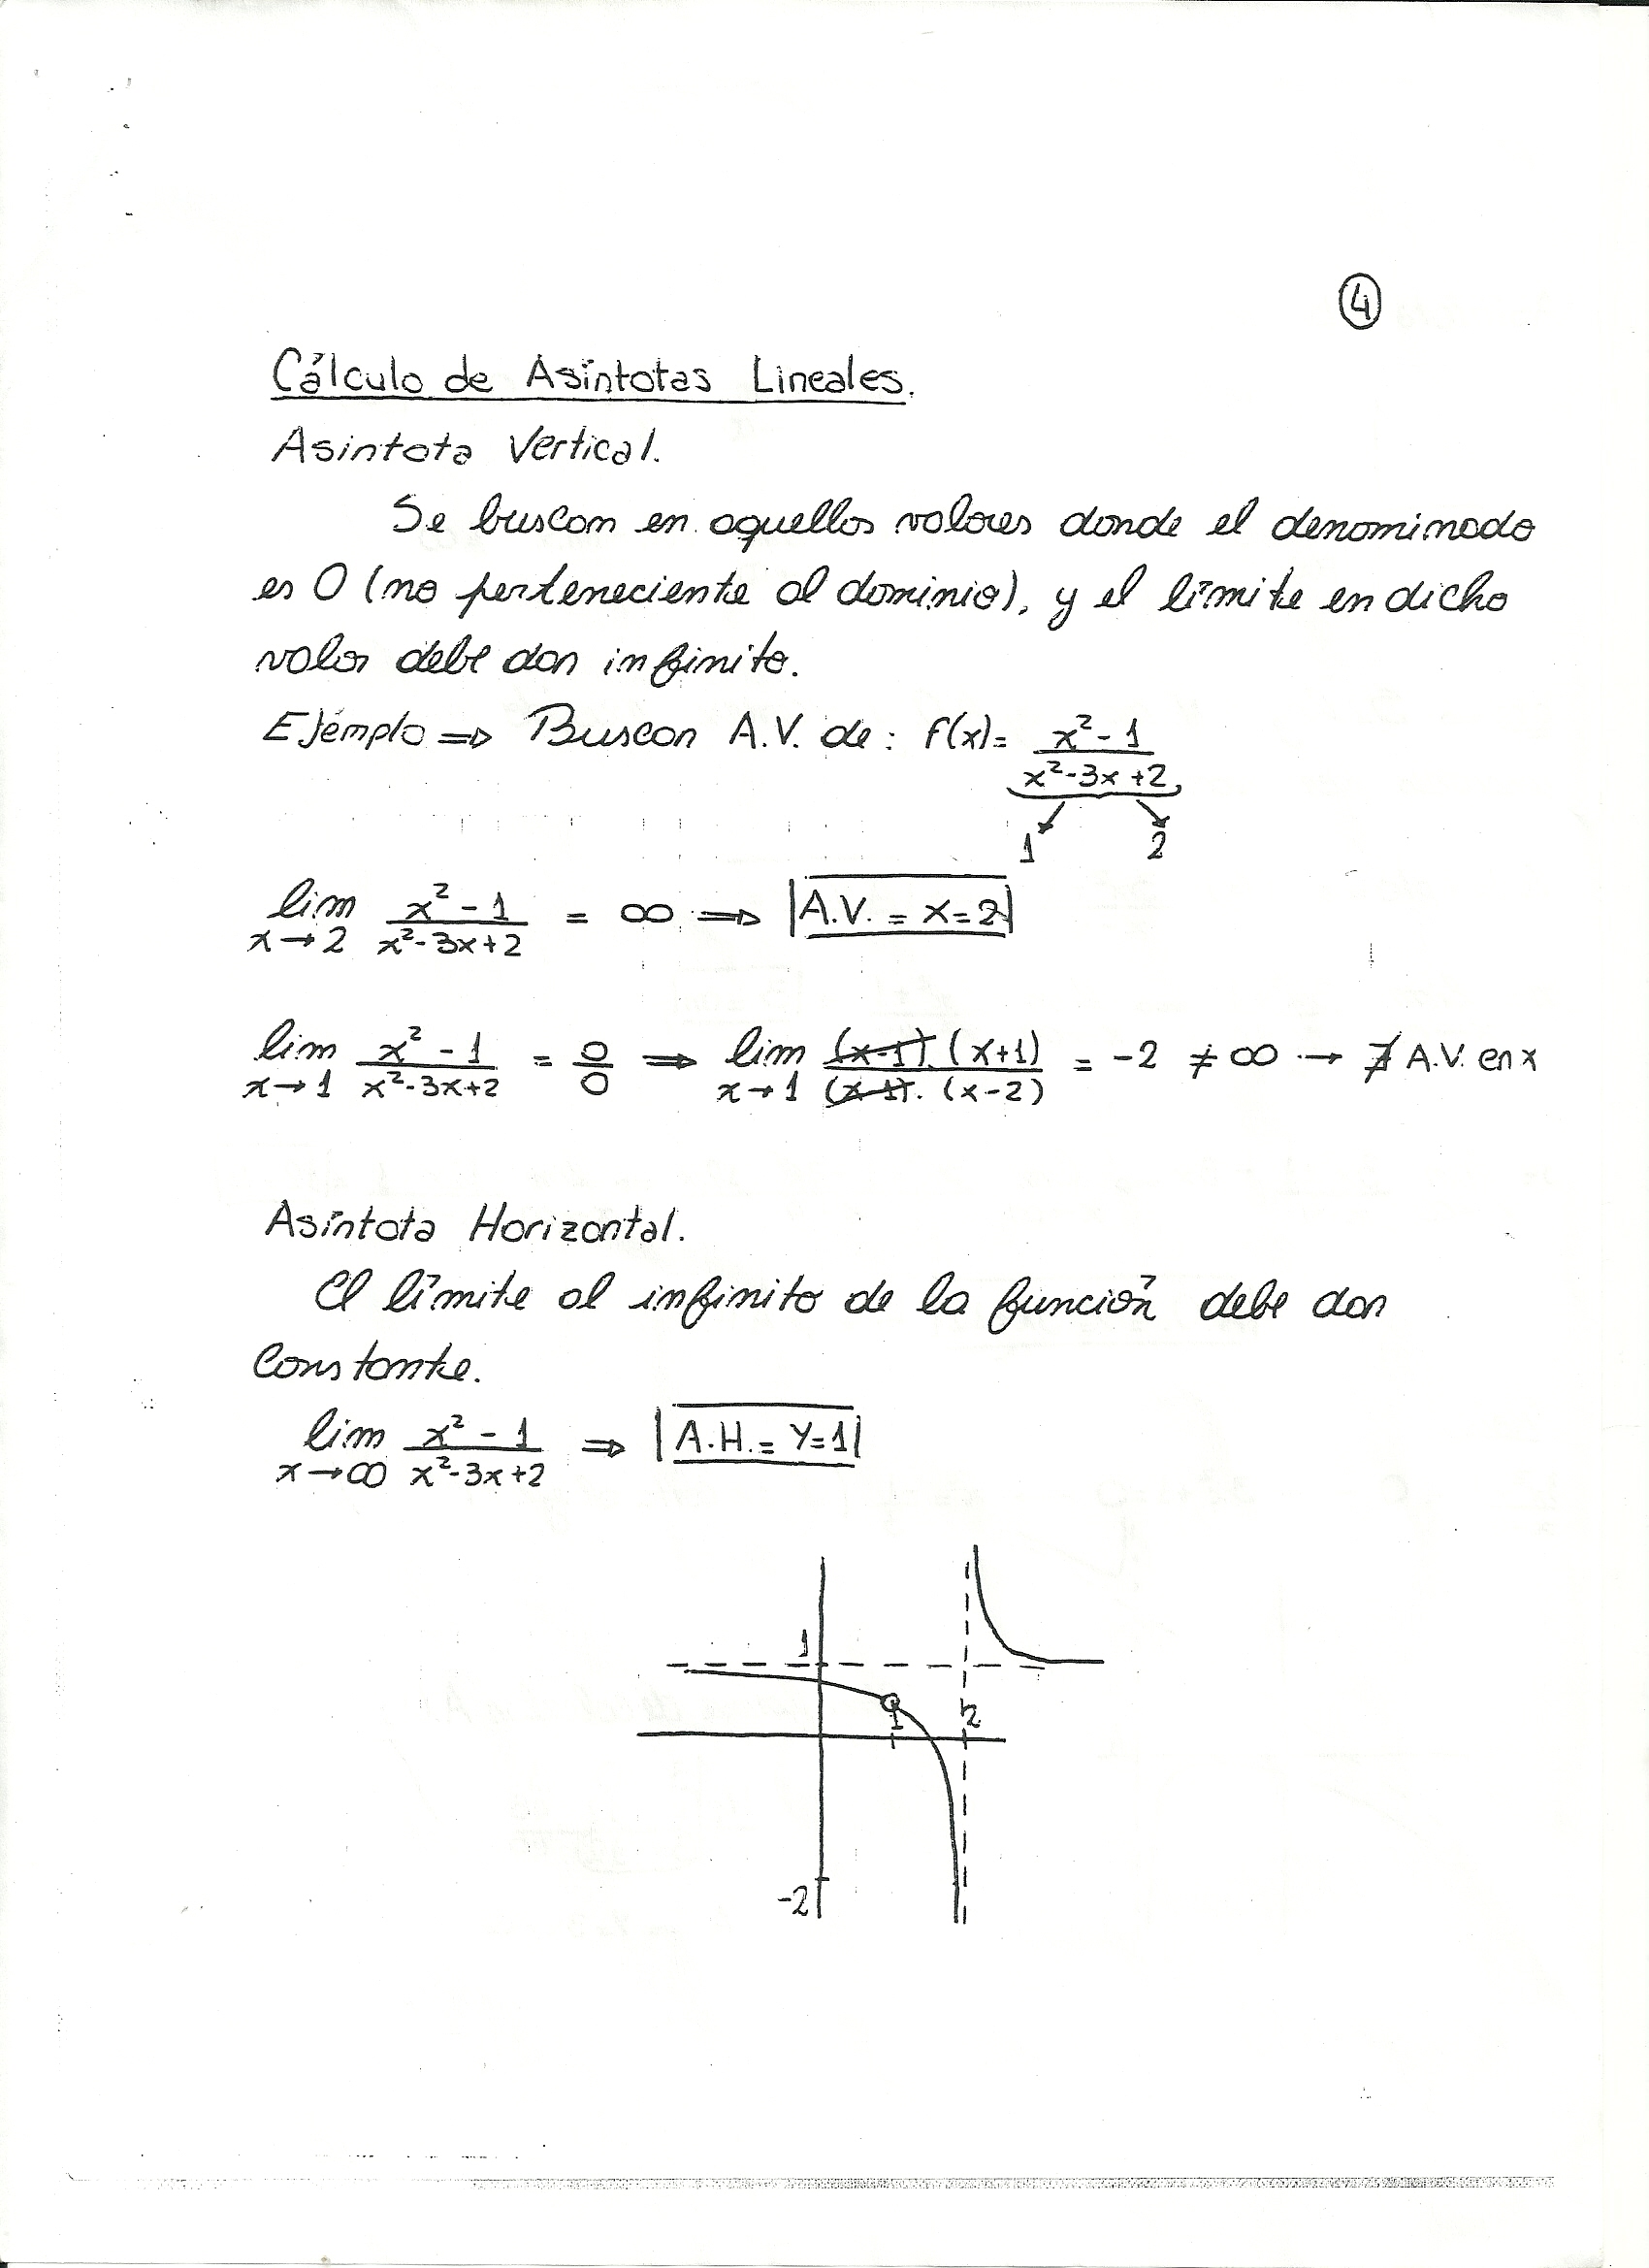 4
Cálculo de Asíntotas Lineales.
Asintota Vertical.
Se buscan en aquellos valores donde el denominado
es 0 (no perteneciente al dominio), y el límite en dicho
valor debe dar infinito.
Ejemplo ⇒ Buscar A.V. de: f(x)= (x²-1)/(x²-3x+2)
1 2
lim x→2 (x²-1)/(x²-3x+2) = ∞ ⇒ |A.V. = x=2|
lim x→1 (x²-1)/(x²-3x+2) = 0/0 ⇒ lim x→1 ((x-1).(x+1))/((x-1).(x-2)) = -2 ≠ ∞ → ∄ A.V. en x
Asíntota Horizontal.
El límite al infinito de la función debe dar
Constante.
lim x→∞ (x²-1)/(x²-3x+2) ⇒ |A.H.= Y=1|
1
1 2
-2